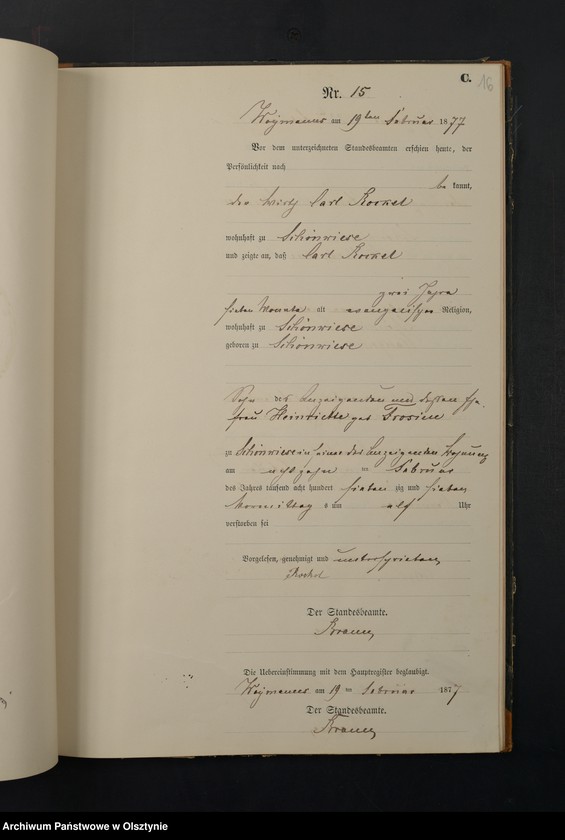 C.
16
Nr. 15
am 19ten Februar 1877
Vor dem unterzeichneten Standesbeamten erschien heute, der
Persönlichkeit nach
be kannt,
der Wirth Carl Rockel
wohnhaft zu Schönwiese
und zeigte an, daß Carl Rockel
zwei Jahre
sieben Monate alt evangelischer Religion,
wohnhaft zu Schönwiese
geboren zu Schönwiese
Sohn des Anzeigenden und dessen Ehe-
frau Heinriette geb
zu Schönwiese in seiner des Anzeigenden Wohnung
am achtzehn ten Februar
des Jahres tausend acht hundert sieben zig und sieben
Vormittag s um elf Uhr
verstorben sei
Vorgelesen, genehmigt und unterschrieben
Rockel
Der Standesbeamte.
Die Uebereinstimmung mit dem Hauptregister beglaubigt.
am 19 ten Februar 1877
Der Standesbeamte.
Archiwum Państwowe w Olsztynie